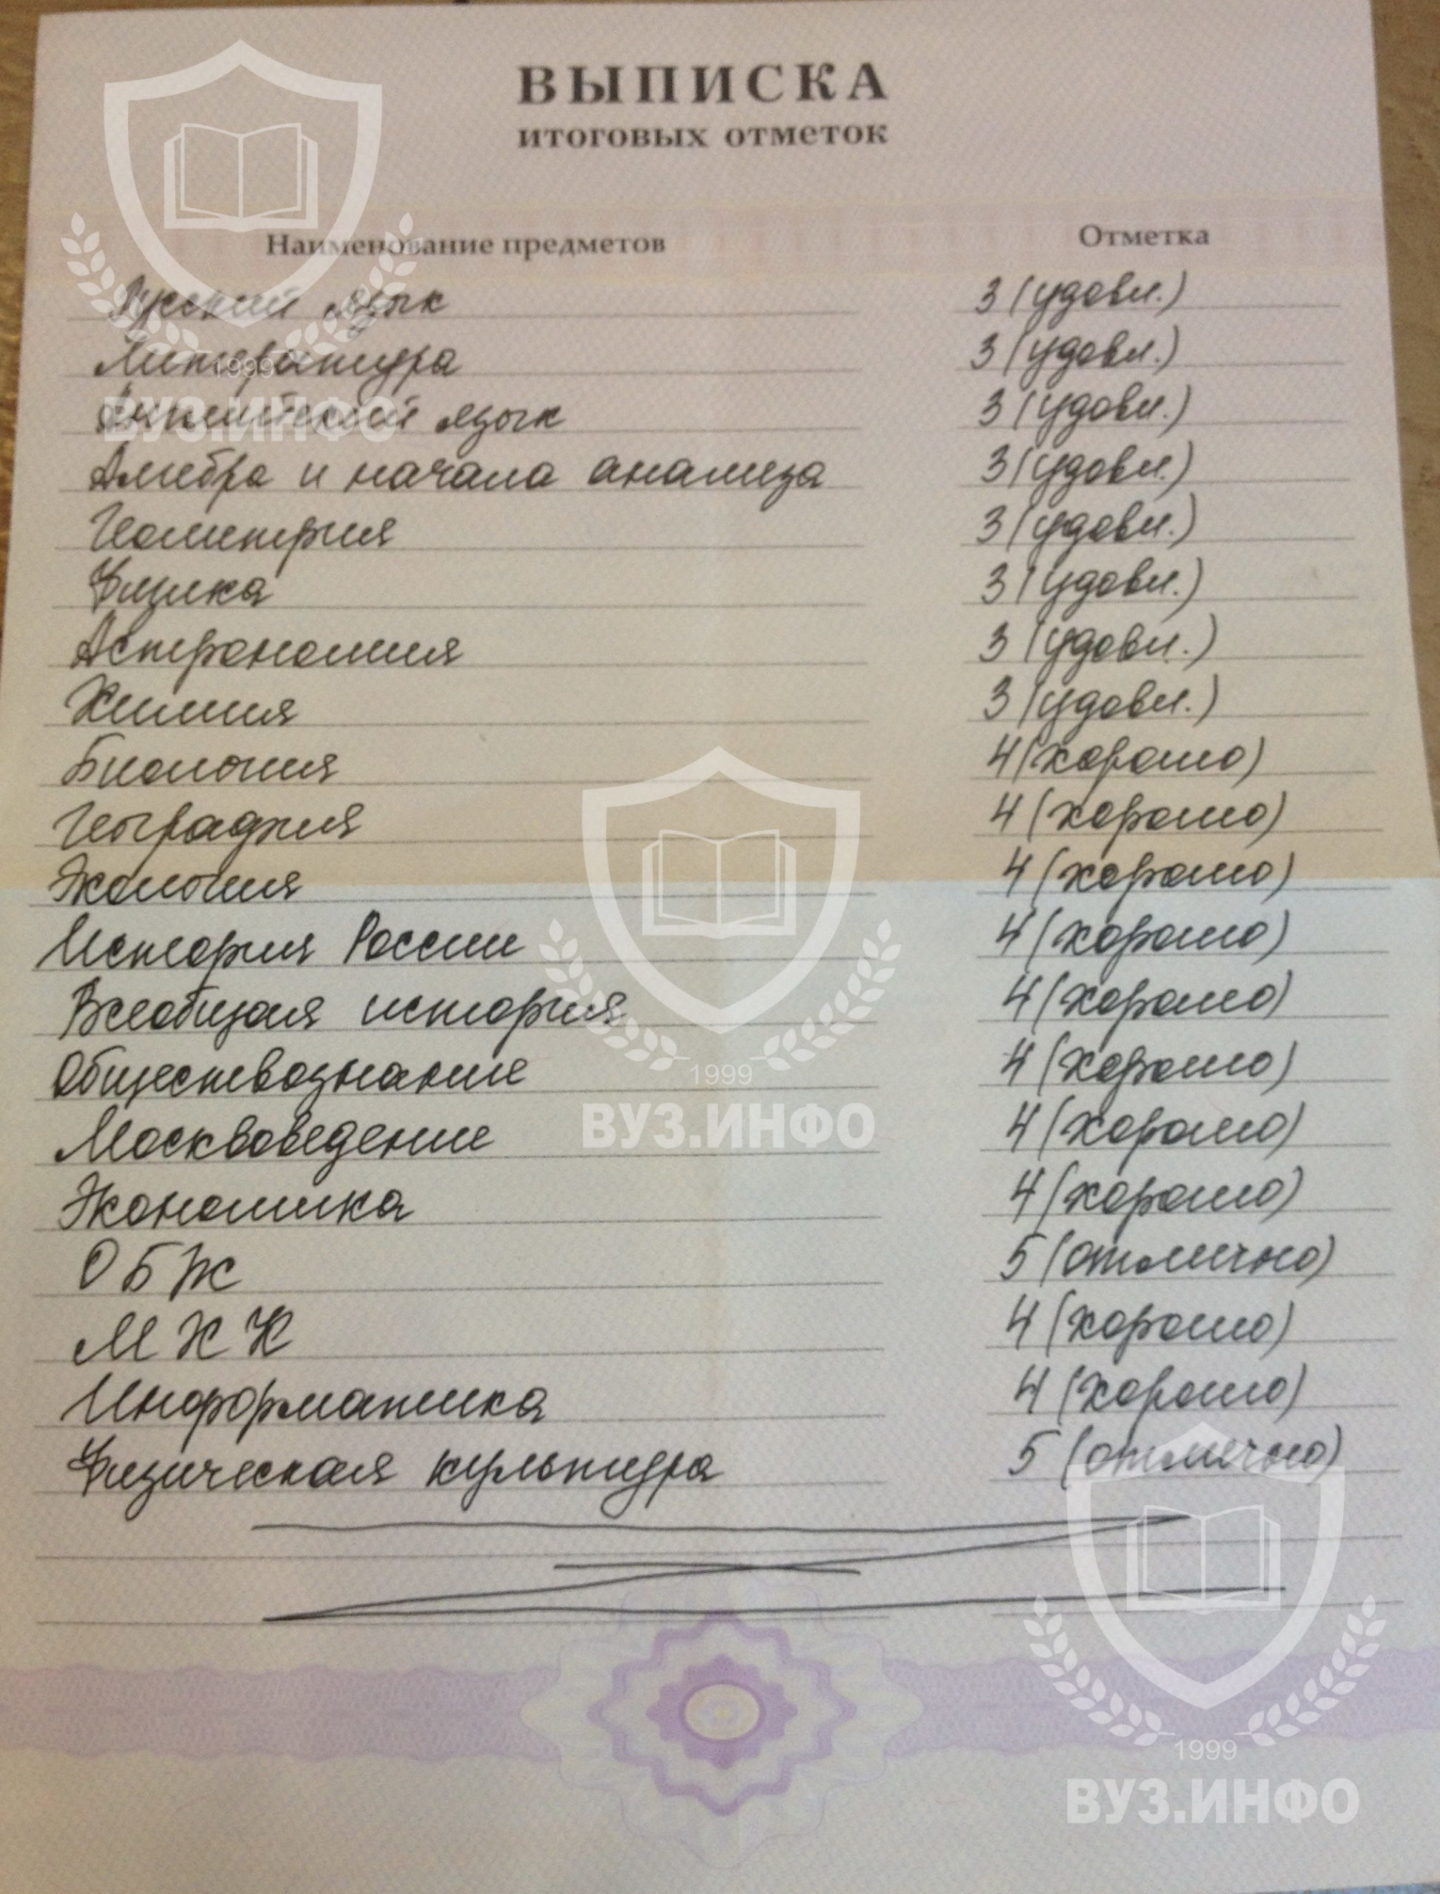 ВЫПИСКА
итоговых отметок
Наименование предметов Отметка
Русский язык 3 (удовл.)
Литература 3 (удовл.)
Английский язык 3 (удовл.)
Алгебра и начала анализа 3 (удовл.)
Геометрия 3 (удовл.)
Физика 3 (удовл.)
Астрономия 3 (удовл.)
Химия 3 (удовл.)
Биология 4 (хорошо)
География 4 (хорошо)
Экология 4 (хорошо)
История России 4 (хорошо)
Всеобщая история 4 (хорошо)
Обществознание 4 (хорошо)
Москвоведение 4 (хорошо)
Экономика 4 (хорошо)
ОБЖ 5 (отлично)
МХК 4 (хорошо)
Информатика 4 (хорошо)
Физическая культура 5 (отлично)
1999
ВУЗ.ИНФО
1999
ВУЗ.ИНФО
1999
ВУЗ.ИНФО